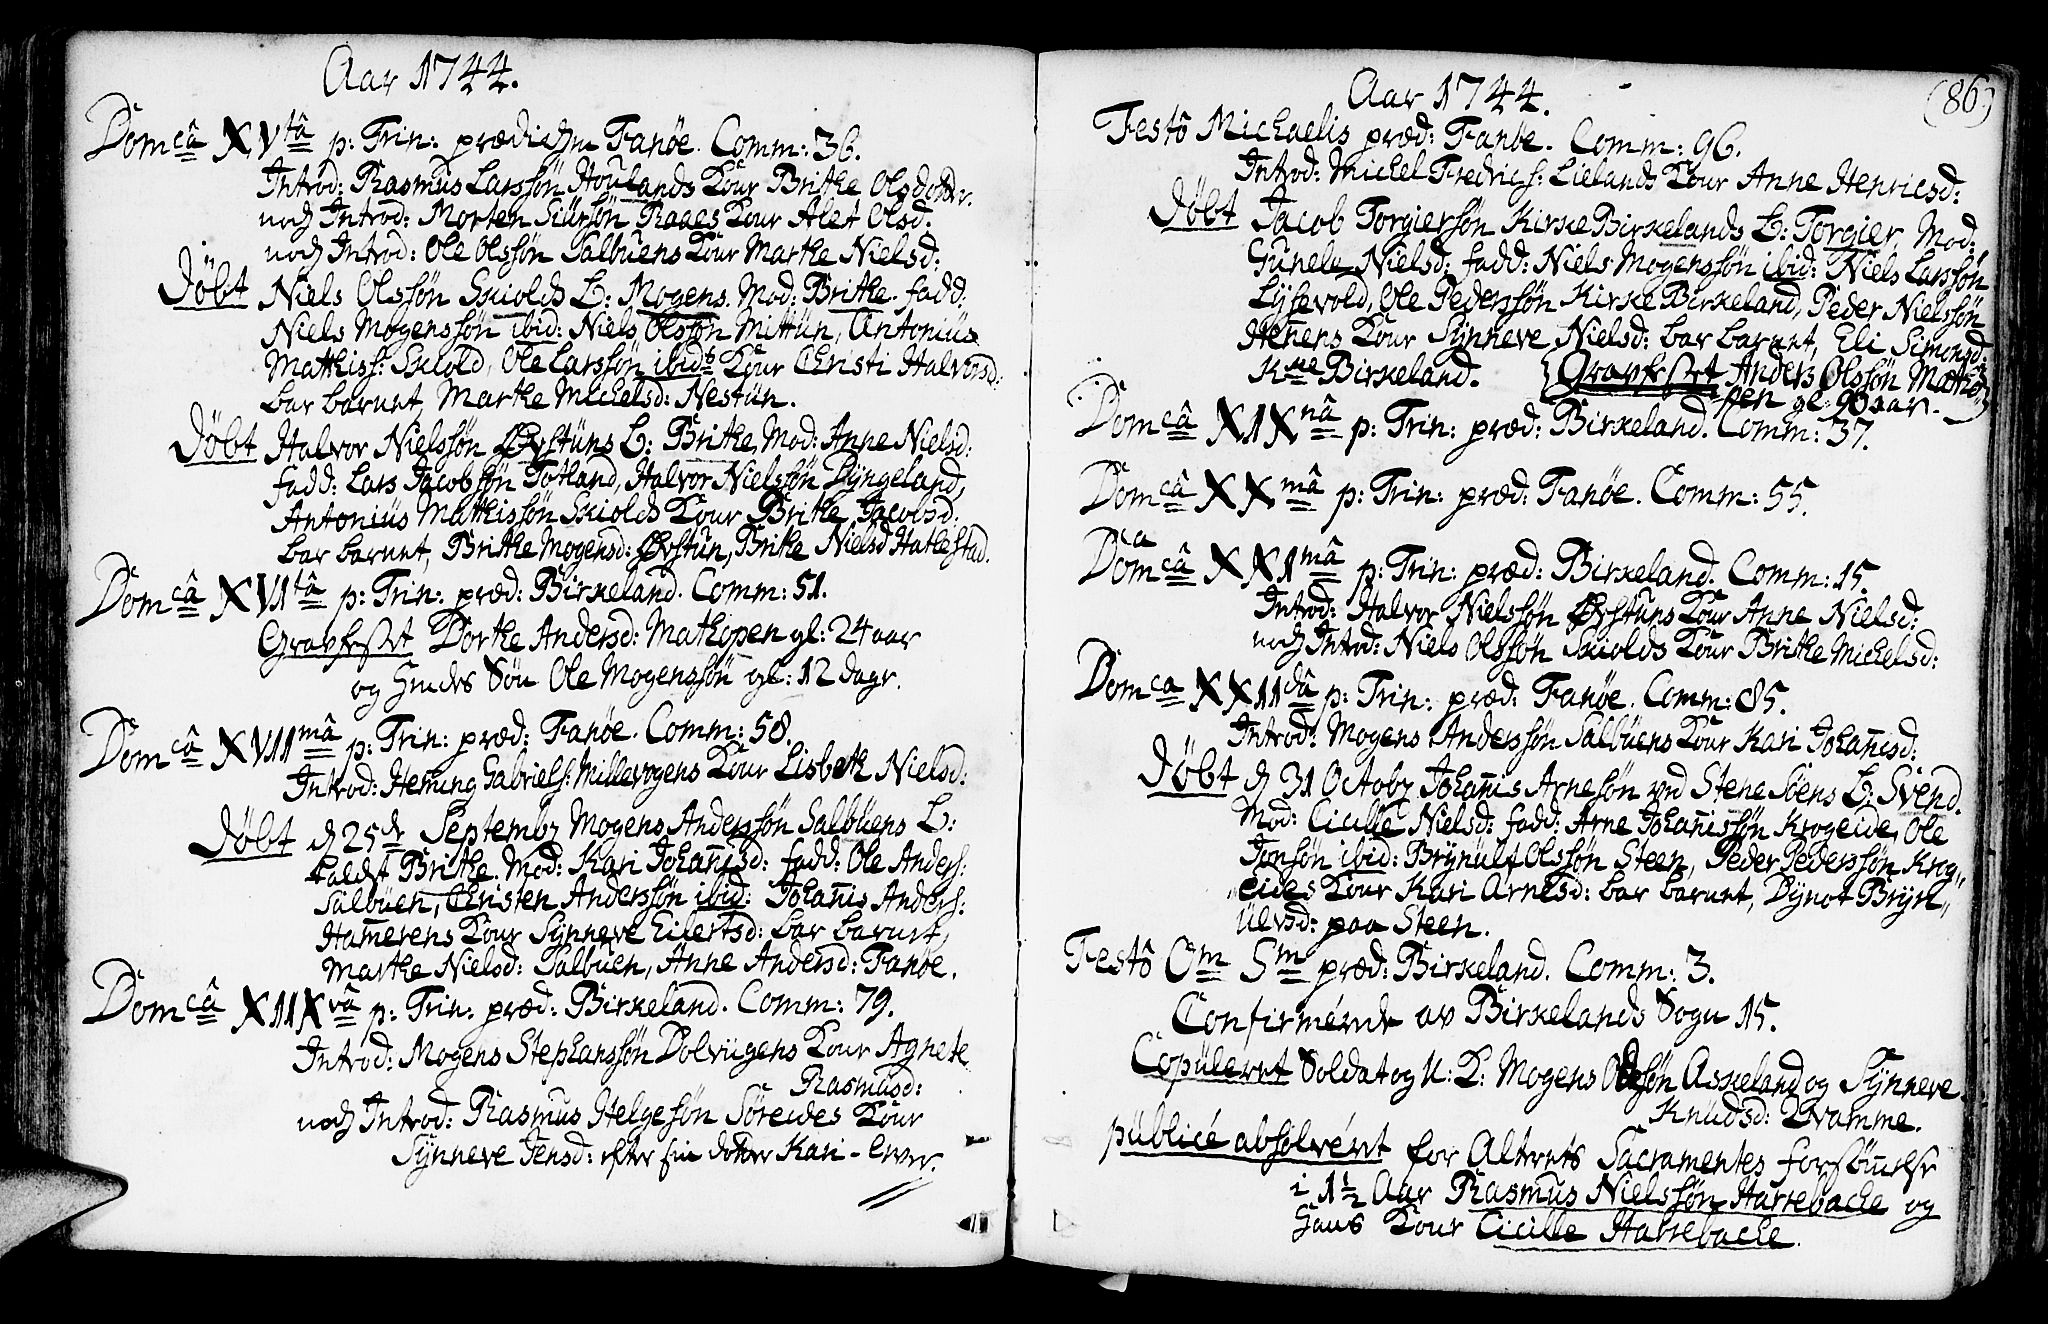 Aar 1744.
Domcâ XVtâ p: Trin: prædichen Fanøe. Comm: 36.
Introd: Rasmus Larssøn Houlands Kour Brithe Olsdotter.
noch Introd: Morten Siursøn Raaes Kour Alet Olsd:
noch Introd: Ole Olssøn Salbuens Kour Marthe Nielsd:
Døbt Niels Olssøn Skiolds B: Mogens. Mod: Brithe. fadd:
Niels Mogenssøn ibid: Niels Olssøn Mittun, Antonius
Mathiss: Skiold, Ole Larssøn ibids Kour Christi Halvorsd:
bar barnet, Marthe Michelsd: Nestun.
Døbt Halvor Nielssøn Øvstuns B: Brithe, Mod: Anne Nielsd:
fadd: Lars Jacobssøn Totland, Halvor Nielssøn Dyngeland,
Antonius Mathissøn Skiolds Kour Brithe Jacobsd:
bar barnet, Brithe Mogensd: Øvstun, Brithe Nielsd Hatlestad.
Domcâ XVItâ p: Trin: præd: Birkeland. Comm: 51.
Gravfestet Dorthe Andersd: Mathopen gl: 24 aar
og hendes Søn Ole Mogenssøn gl: 12 dage.
Domcâ XVIImâ p: Trin: præd: Fanøe. Comm: 58.
Introd: Heming Gabriels: Millevogens Kour Lisbeth Nielsd:
Døbt d 25de Septembr Mogens Anderssøn Salbuens B:
kaldet Brithe. Mod: Kari Johannisd: fadd: Ole Anders:
Salbuen, Christen Anderssøn ibid: Johannis Anders:
Hamrens Kour Synneve Eilertsd: bar barnet,
Marthe Nielsd: Salbuen, Anne Andersd: Fanøe.
Domcâ XIIXvâ p: Trin: præd: Birkeland. Comm: 79.
Introd: Mogens Stephanssøn Dolvigens Kour Agnete
Rasmusd:
noch Introd: Rasmus Helgesøn Søreides Kour
Synneve Jensd: efter sin dotter Kari
Aar 1744.
(86)
Festô Michaelis præd: Fanøe. Comm: 96.
Introd: Michel Fredrics: Lielands Kour Anne Henricsd:
Døbt Jacob Torgiersøn Kirke Birkelands B: Torgier, Mod:
Gunele Nielsd: fadd: Niels Mogenssøn ibid: Niels Larssøn
Lysevold, Ole Pederssøn Kirke Birkeland, Peder Nielssøn
Hennens Kour Synneve Nielsd: bar barnet, Eli Simonsd:
Kke Birkeland. Gravfestet Anders Olssøn Matho„
pen gl: 90 aar.
Domcâ XIXnâ p: Trin: præd: Birkeland. Comm: 37.
Domcâ XXmâ p: Trin: præd: Fanøe. Comm: 55.
Domcâ XXImâ p: Trin: præd: Birkeland. Comm: 15.
Introd: Halvor Nielssøn Øvstuns Kour Anne Nielsd:
noch Introd: Niels Olssøn Skiolds Kour Brithe Michelsd:
Domca XXIIdâ p: Trin: præd: Fanøe. Comm: 85.
Introd: Mogens Anderssøn Salbuens Kour Kari Johannisd:
Døbt d 31 Octobr Johannis Arnesøn ved Stene Søens B: Svend.
Mod: Cicille Nielsd: fadd: Arne Johannissøn Krogeide, Ole
Jonsøn ibid: Brynulf Olssøn Steen, Peder Pederssøn Krog„
„eides Kour Kari Arnesd: bar barnet, Dynot Bryn„
ulvsd: paa Steen.
Festô Om Sm præd: Birkeland. Comm: 3.
Confirmérede av Birkelands Sogn 15.
Copuleret Soldat og U: K: Mogens Olssøn Askeland og Synneve
Knudsd: Qvamme.
publicé absolvéret for Alterets Sacramentes forsømmelse
i 1½ Aar Rasmus Nielssøn Harrebacke og
hans Kour Cicille Harrebacke.